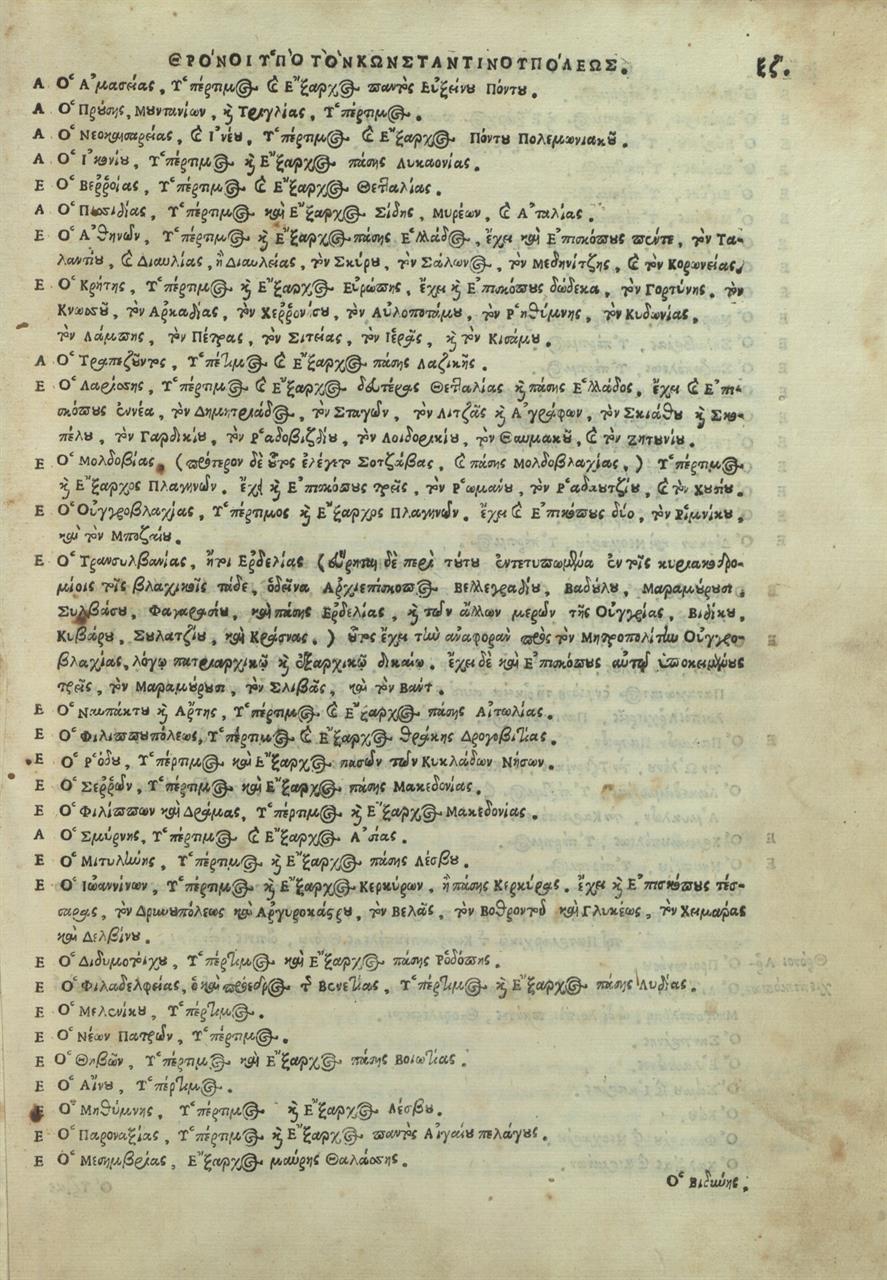 ΘΡΟ´ΝΟΙ Υ῾ΠΟ` ΤΟ`Ν ΚΩΝΣΤΑΝΤΙΝΟΥΠΟ´ΛΕΩΣ. ξζ´.
Α Ο῾ Α᾿μασείας, Υ῾πέρτιμος καὶ Ε῎ξαρχος παντὸς Εὐξείνου Πόντου.
Α Ο῾ Πρύσης, Μουντανίων, καὶ Τριγλίας, Υ῾πέρτιμος.
Α Ο῾ Νεοκαισαρείας, καὶ Ι᾿νέου, Υ῾πέρτιμος καὶ Ε῎ξαρχος Πόντου Πολεμωνιακοῦ.
Α Ο῾ Ι᾿κονίου, Υ῾πέρτιμος καὶ Ε῎ξαρχος πάσης Λυκαονίας.
Ε Ο῾ Βεῤῥοίας, Υ῾πέρτιμος καὶ Ε῎ξαρχος Θετταλίας.
Α Ο῾ Πισσιδίας, Υ῾πέρτιμος καὶ Ε῎ξαρχος Σίδης, Μυρέων, καὶ Α᾿ταλίας.
Ε Ο῾ Α᾿θηνῶν, Υ῾πέρτιμος καὶ Ε῎ξαρχος πάσης Ε῾λλάδος, ἔχει καὶ Ε᾿πισκόπους πέντε, τὸν Τα-
λαντίου, καὶ Διαυλίας, ἢ Διαυλείας, τὸν Σκύρου, τὸν Σάλωνος, τὸν Μεδηνίτζης, καὶ τὸν Κορωνείας.
Ε Ο῾ Κρήτης, Υ῾πέρτιμος καὶ Ε῎ξαρχος Εὐρώπης, ἔχει καὶ Ε᾿πισκόπους δώδεκα, τὸν Γορτύνης, τὸν
Κνωσσοῦ, τὸν Α᾿ρκαδίας, τὸν Χεῤῥονίσου, τὸν Αὐλοποτάμου, τὸν Ρ῾ηθύμνης, τὸν Κυδωνίας,
τὸν Λάμπης, τὸν Πέτρας, τὸν Σιτείας, τὸν Ἱερᾶς, καὶ τὸν Κισάμου.
Α Ο῾ Τραπεζοῦντος, Υ῾πέρτιμος καὶ Ε῎ξαρχος πάσης Λαζικῆς.
Ε Ο῾ Λαρίσσης, Υ῾πέρτιμος καὶ Ε῎ξαρχος δευτέρας Θετταλίας καὶ πάσης Ε῾λλάδος, ἔχει καὶ Ε᾿πι-
σκόπους ἐννέα, τὸν Δημητριάδος, τὸν Σταγῶν, τὸν Λιτζᾶς καὶ Α᾿γράφων, τὸν Σκιάθου καὶ Σκο-
πέλου, τὸν Γαρδικίου, τὸν Ρ῾αδοβιζδίου, τὸν Λοιδορικίου, τὸν Θαυμακοῦ, καὶ τὸν Ζητουνίου.
Ε Ο῾ Μολδοβίας (πρότερον δὲ οὗτος ἐλέγετο Σοτζάβας, καὶ πάσης Μολδοβλαχίας,) Υ῾πέρτιμος
καὶ Ε῎ξαρχος Πλαγηνῶν. ἔχει καὶ Ε᾿πισκόπους τρεῖς, τὸν Ρ῾ωμάνου, τὸν Ρ῾αδαουτζίου, καὶ τὸν Χουσίου.
Ε Ο῾ Οὐγγροβλαχίας, Υ῾πέρτιμος καὶ Ε῎ξαρχος Πλαγηνῶν. ἔχει καὶ Ε᾿πισκόπους δύο, τὸν Ριμνίκου,
καὶ τὸν Μποζαίου.
Ε Ο῾ Τρανσυλβανίας, ἤτοι Ε᾿ρδελίας (εὕρηται δὲ περὶ τούτου ἐντετυπωμένα ἐν τοῖς κυριακοδρο-
μίοις τοῖς βλαχικοῖς τάδε, ὁδεῖνα Α᾿ρχιεπίσκοπος Βελλεγραδίου, Βαδύλου, Μαραμύρουσι,
Συλβάσου, Φαγαρασίου, καὶ πάσης Ε᾿ρδελίας, καὶ τῶν ἄλλων μερῶν τῆς Οὐγγρίας, Βιδίκου,
Κυβάρου, Σουλατζίου, καὶ Κράσνας.) οὗτος ἔχει τὴν ἀναφορὰν πρὸς τὸν Μητροπολίτην Οὐγγρο-
βλαχίας, λόγῳ πατριαρχικῷ καὶ ἐξαρχικῷ δικαίῳ. ἔχει δὲ καὶ Ε᾿πισκόπους αὐτῷ ὑποκειμένους
τρεῖς, τὸν Μαραμύρουσι, τὸν Σλιβᾶς, καὶ τὸν Βαντ.
Ε Ο῾ Ναυπάκτου καὶ Α῎ρτης, Υ῾πέρτιμος καὶ Ε῎ξαρχος πάσης Αἰτωλίας.
Ε Ο῾ Φιλιππουπόλεως, Υ῾πέρτιμος καὶ Ε῎ξαρχος Θράκης Δρογοβιτίας.
Ε Ο῾ Ρ῾όδου, Υ῾πέρτιμος καὶ Ε῎ξαρχος πασῶν τῶν Κυκλάδων Νήσων.
Ε Ο῾ Σεῤῥῶν, Υ῾πέρτιμος καὶ Ε῎ξαρχος πάσης Μακεδονίας.
Ε Ο῾ Φιλίππων καὶ Δράμας, Υ῾πέρτιμος καὶ Ε῎ξαρχος Μακεδονίας.
Α Ο῾ Σμύρνης, Υ῾πέρτιμος καὶ Ε῎ξαρχος Α᾿σίας.
Ε Ο῾ Μιτυλήνης, Υ῾πέρτιμος καὶ Ε῎ξαρχος πάσης Λέσβου.
Ε Ο῾ Ἰωαννίνων, Υ῾πέρτιμος καὶ Ε῎ξαρχος Κερκύρων, ἢ πάσης Κερκύρας. ἔχει καὶ Ε᾿πισκόπους τέσ-
σαρας, τὸν Δρυινουπόλεως καὶ Α᾿ργυροκάστρου, τὸν Βελᾶς, τὸν Βοθροντοῦ καὶ Γλυκέως, τὸν Χειμάρας
καὶ Δελβίνου.
Ε Ο῾ Διδυμοτίχου, Υ῾πέρτιμος καὶ Ε῎ξαρχος πάσης Ρ῾οδόπης.
Ε Ο῾ Φιλαδελφείας, ὁ καὶ πρόεδρος τῆς Βενετίας, Υ῾πέρτιμος καὶ Ε῎ξαρχος πάσης Λυδίας.
Ε Ο῾ Μελενίκου, Υ῾πέρτιμος.
Ε Ο῾ Νέων Πατρῶν, Υ῾πέρτιμος.
Ε Ο῾ Θηβῶν, Υ῾πέρτιμος καὶ Ε῎ξαρχος πάσης Βοιωτίας.
Ε Ο῾ Αἴνου, Υ῾πέρτιμος.
Ε Ο῾ Μηθύμνης, Υ῾πέρτιμος καὶ Ε῎ξαρχος Λέσβου.
Ε Ο῾ Παροναξίας, Υ῾πέρτιμος καὶ Ε῎ξαρχος παντὸς Αἰγαίου πελάγους.
Ε Ο῾ Μεσημβρίας, Ε῎ξαρχος μαύρης Θαλάσσης.
Ο῾ Βιδύνης.